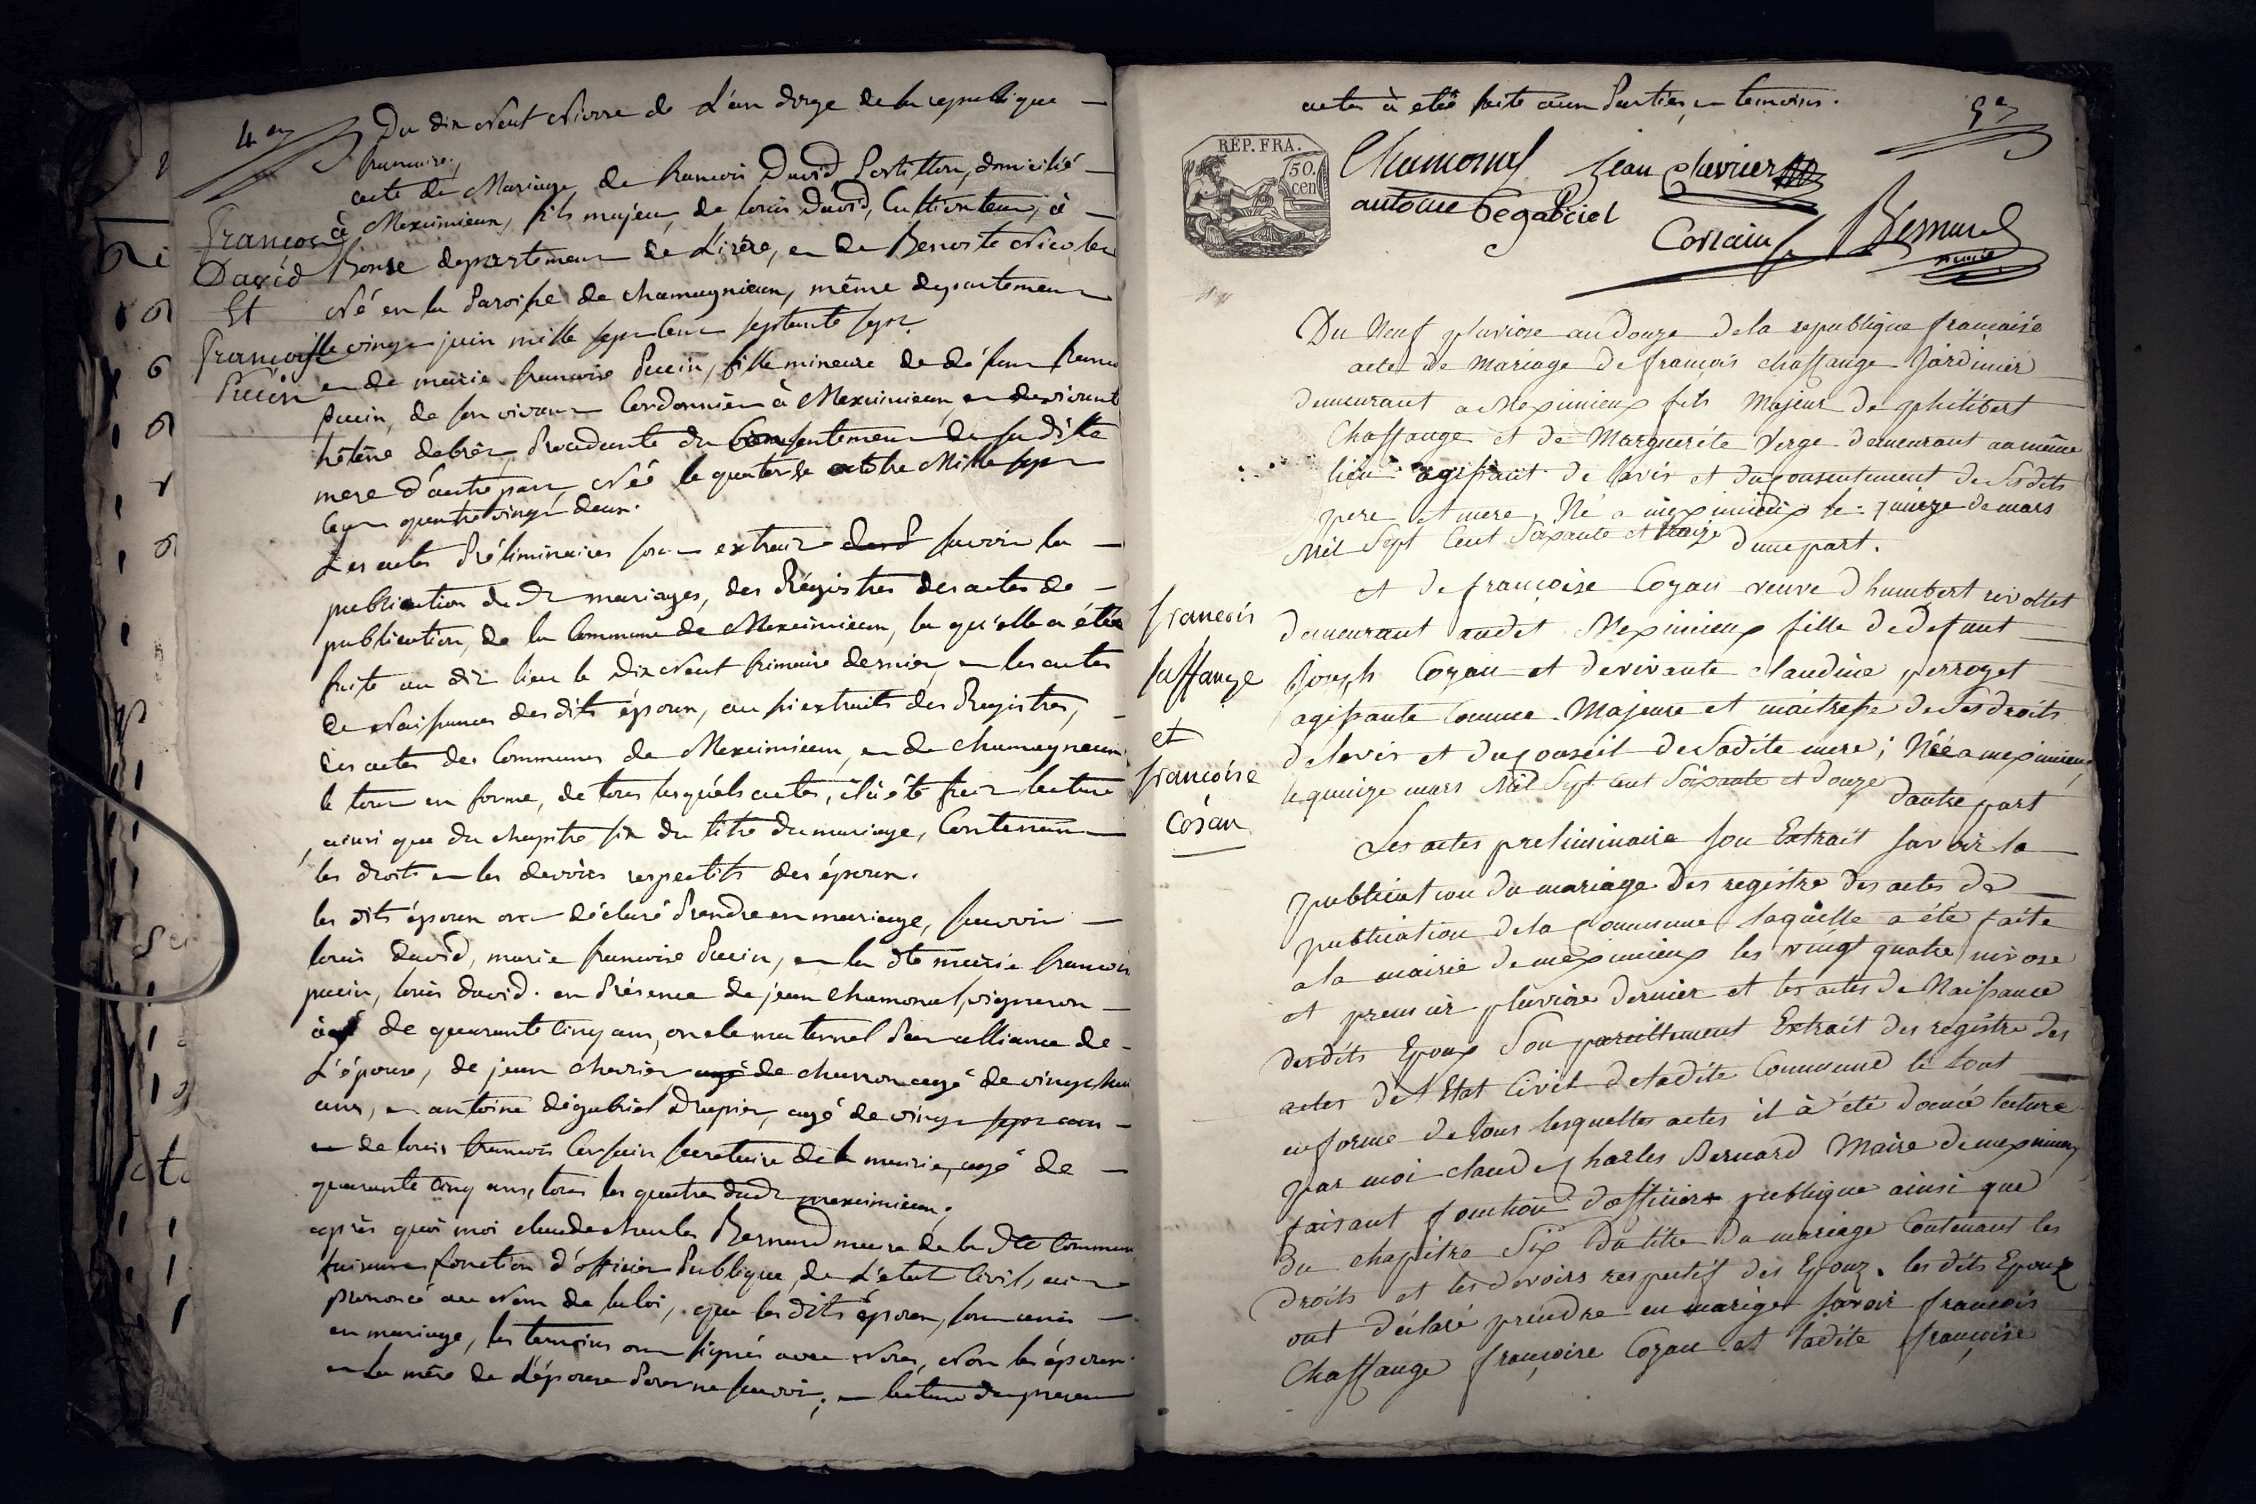 4.e
Du dix neuf nivose de L'an douze de la republique
francaise,
acte de Mariage, de francois David Postillon, domicilié
à Meximieux, fils majeur, de louis David, Cultivateur, à
departement de L'isère, et de Benoite
Né en la Paroisse de chamagnieux, même departement
le vingt juin mille sept cent septante sept.
et de marie francoise Pucin, fille mineure de défunt
pucin, de son vivant Cordonnier à Meximieux, et de vivante
héléne debrer, Procedante du Consentement de sa ditte
mere d'autre part, Née le quatorze octobre Mille sept
Cent quatre vingt deux.
François
David
Et
Françoise
Pucin
Les actes Préliminaires sont extrait savoir la
publication du dt mariages, des Régistres des actes de
publication, de la Commune de Meximieux, la qu'elle a étée
faite au dit lieu le Dix neuf frimaire dernier et les actes
de Naissances des dits époux, aussi extraits des Registres,
des actes des Communes de Meximieux, et de chamagnieux
le tout en forme, de tous lesquéls actes, il a été fait lecture
ainsi que du chapitre six du titre du mariage, Contenant
les droits et les devoirs respectifs des époux.
les dits époux ont déclaré Prendre en mariage, savoir
louis david, marie francoise Pucin, et la dte marie francoise
pucin, louis david. en Présence de jean chamonal, vigneron
agé de quarante cinq ans, oncle maternel Par alliance de
L'épouse, de jean clavier charron agé de vingt huit
ans, et antoine dégabriel drapier, agé de vingt sept ans
et de louis francois Corsain secretaire de la mairie, agé de
quarante cinq ans, tous les quatre dudt meximieux;
après quoi moi claude charles Bernard maire de la dte Commune
faisant fonction d'officier Publique, de L'etat Civil, ai
prononcé au Nom de la loi, que les dits époux, sont unis
en mariage, les temoins ont signés avec Nous, Non les époux
et la mère de L'épouse Pour ne savoir; et lecture du present
actes à etée faite aux Parties et temoins.
5.e
RÉP. FRA.
50.
cen
Chamonal
Jean Clavier
antoine Degabriel
Corsain
Bernard
maire
Du Neuf pluviose an douze de la republique francaise
acte de mariage de françois chaffange Jardinier
demeurant a Meximieux fils Majeur de philibert
Chaffange et de Marguerite Verge demeurant au même
lieu agissant de lavis et du consentement de Ses dits
pere et mere, Né a meximieux le quinze de mars
Mil Sept Cent Soixante et treize d'une part.
et de françoise Cozan veuve d'humbert revottet
demeurant audet Meximieux fille de defunt
Joseph Cozan et de vivante claudine perrozet
agissante Comme Majeure et maitresse de Ses droits
de lavis et du conseil de Sadite mere; Née a meximieux
le quinze mars Mil Sept cent Soixante et douze dautre part
francois
Saffange
et
francoise
Cosan
Les actes preliminaire Son Extrait Savoir la
publication du mariage des registre des actes de
publication de la commune laquelle a été faite
a la mairie de meximieux les vingt quatre nivose
et premier pluviose dernier et les actes de Naissance
desdits Epoux Son pareillement Extrait des registre des
actes de l'Etat Civil de ladite Commune le tout
en forme de tous lesquelles actes il à été donné lecture
par moi claude charles Bernard Maire de meximieux
faisant fonction dofficier publique ainsi que
Du chapitre Six du titre Du mariage Contenant les
droits et les devoirs respectif des Epoux. les dits Epoux
ont déclaré prendre en mariage Savoir francois
Chaffange françoise Cozan et ladite françoise